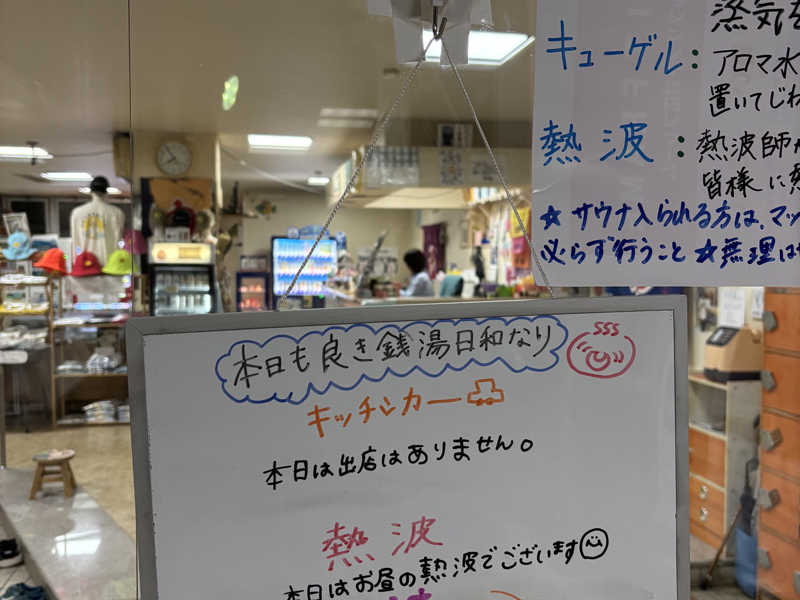 蒸気を
キューゲル：アロマ水
置いてじわ
熱波：熱波師が
皆様に熱
★サウナ入られる方は、マッ
必らず行うこと ★無理は
本日も良き銭湯日和なり
キッチンカー
本日は出店はありません。
熱波
本日はお昼の熱波でございます